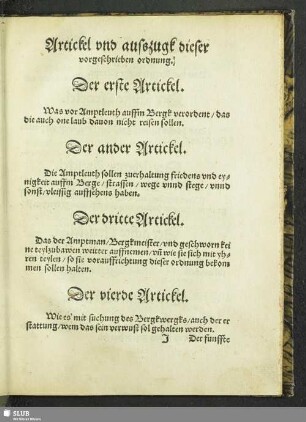 Artickel vnd auszugk dieser
vorgeschrieben ordnung.
Der erste Artickel.
Was vor Amptleuth auffm Bergk verordent / das
die auch one laub dauon nicht reisen sollen.
Der ander Artickel.
Die Amptleuth sollen zuerhaltung friedens vnd ey-
nigkeit auffm Berge / strassen / wege vnnd stege / vnnd
sonst / vleissig auffsehens haben.
Der dritte Artickel.
Das der Amptman / Bergkmeister / vnd geschworn kei
ne teylzubawen weitter auffnemen / vñ wie sie sich mit yh-
ren teylen / so sie vorauffrichtung dieser ordnung bekom
men sollen halten.
Der vierde Artickel.
Wie es mit suchung des Bergkwergks / auch der er
stattung / wem das sein verwust sol gehalten werden.
J Der funffte
SLUB